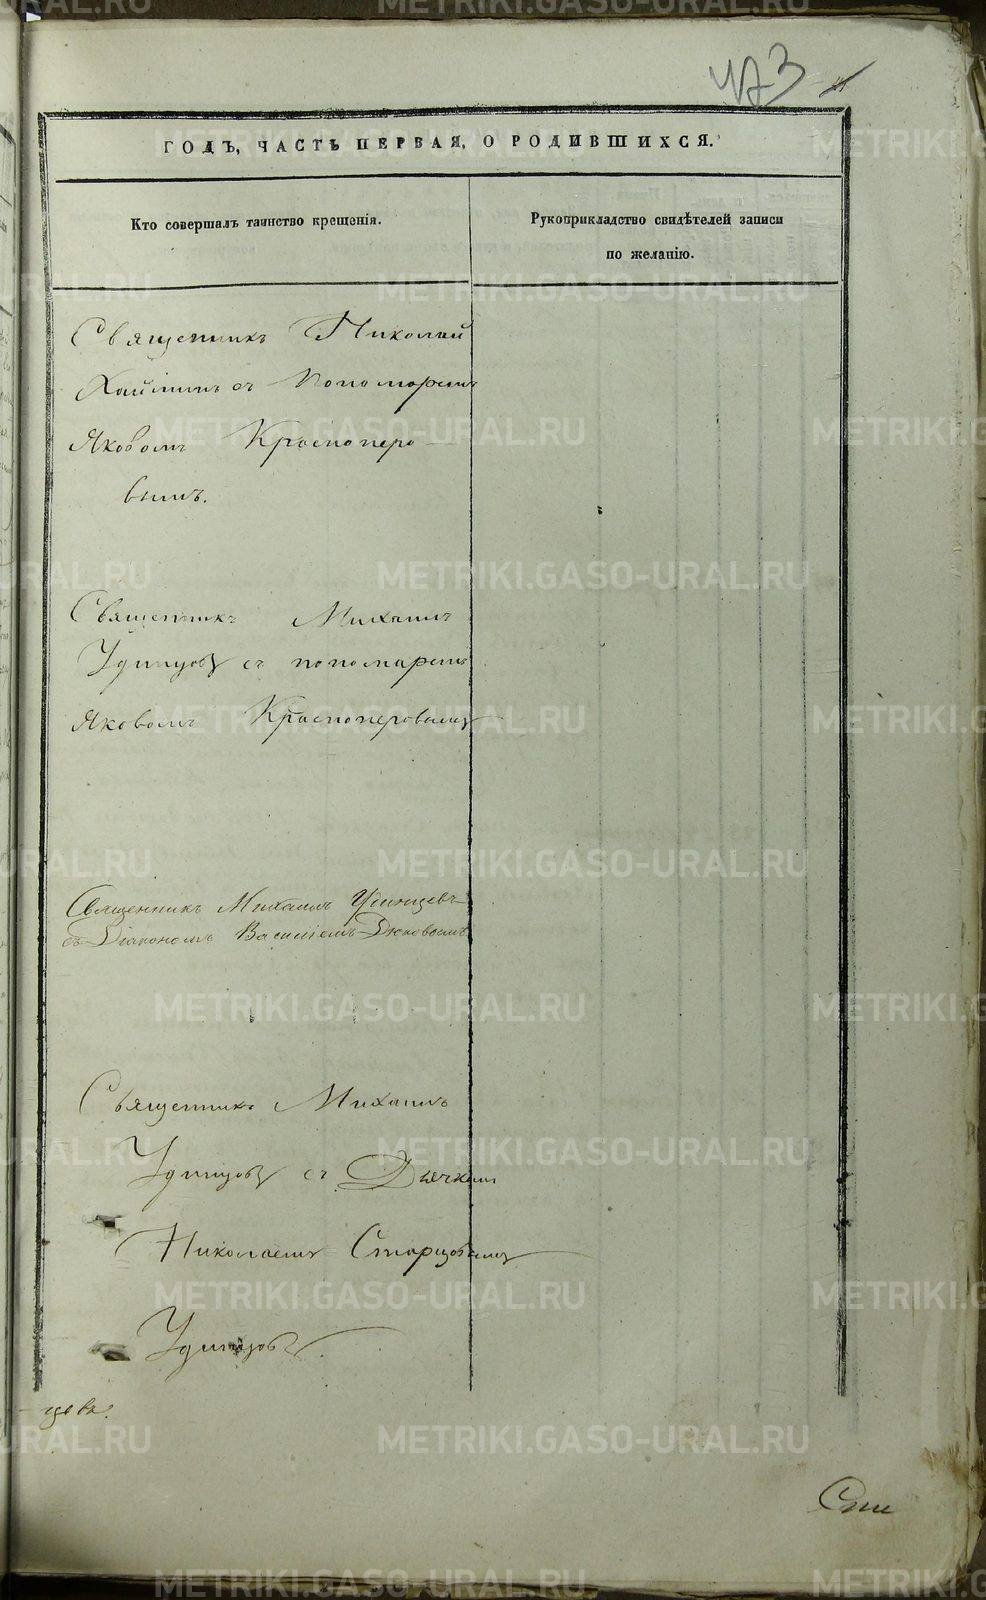 473
ГОДЪ, ЧАСТЬ ПЕРВАЯ, О РОДИВШИХСЯ.
Кто совершалъ таинство крещенія.
Рукоприкладство свидѣтелей записи
по желанію.
Священникъ Николай
съ Пономаремъ
Яковомъ Красноперо
вымъ.
Священникъ Михаилъ
Удинцовъ съ пономаремъ
Яковомъ Красноперовымъ
Священникъ Михаилъ Удинцевъ
съ Діакономъ Василіемъ Дюковымъ
Священникъ Михаилъ
Удинцовъ съ Дьячкомъ
Николаемъ Старцовымъ
Удинцовъ
METRIKI.GASO-URAL.RU